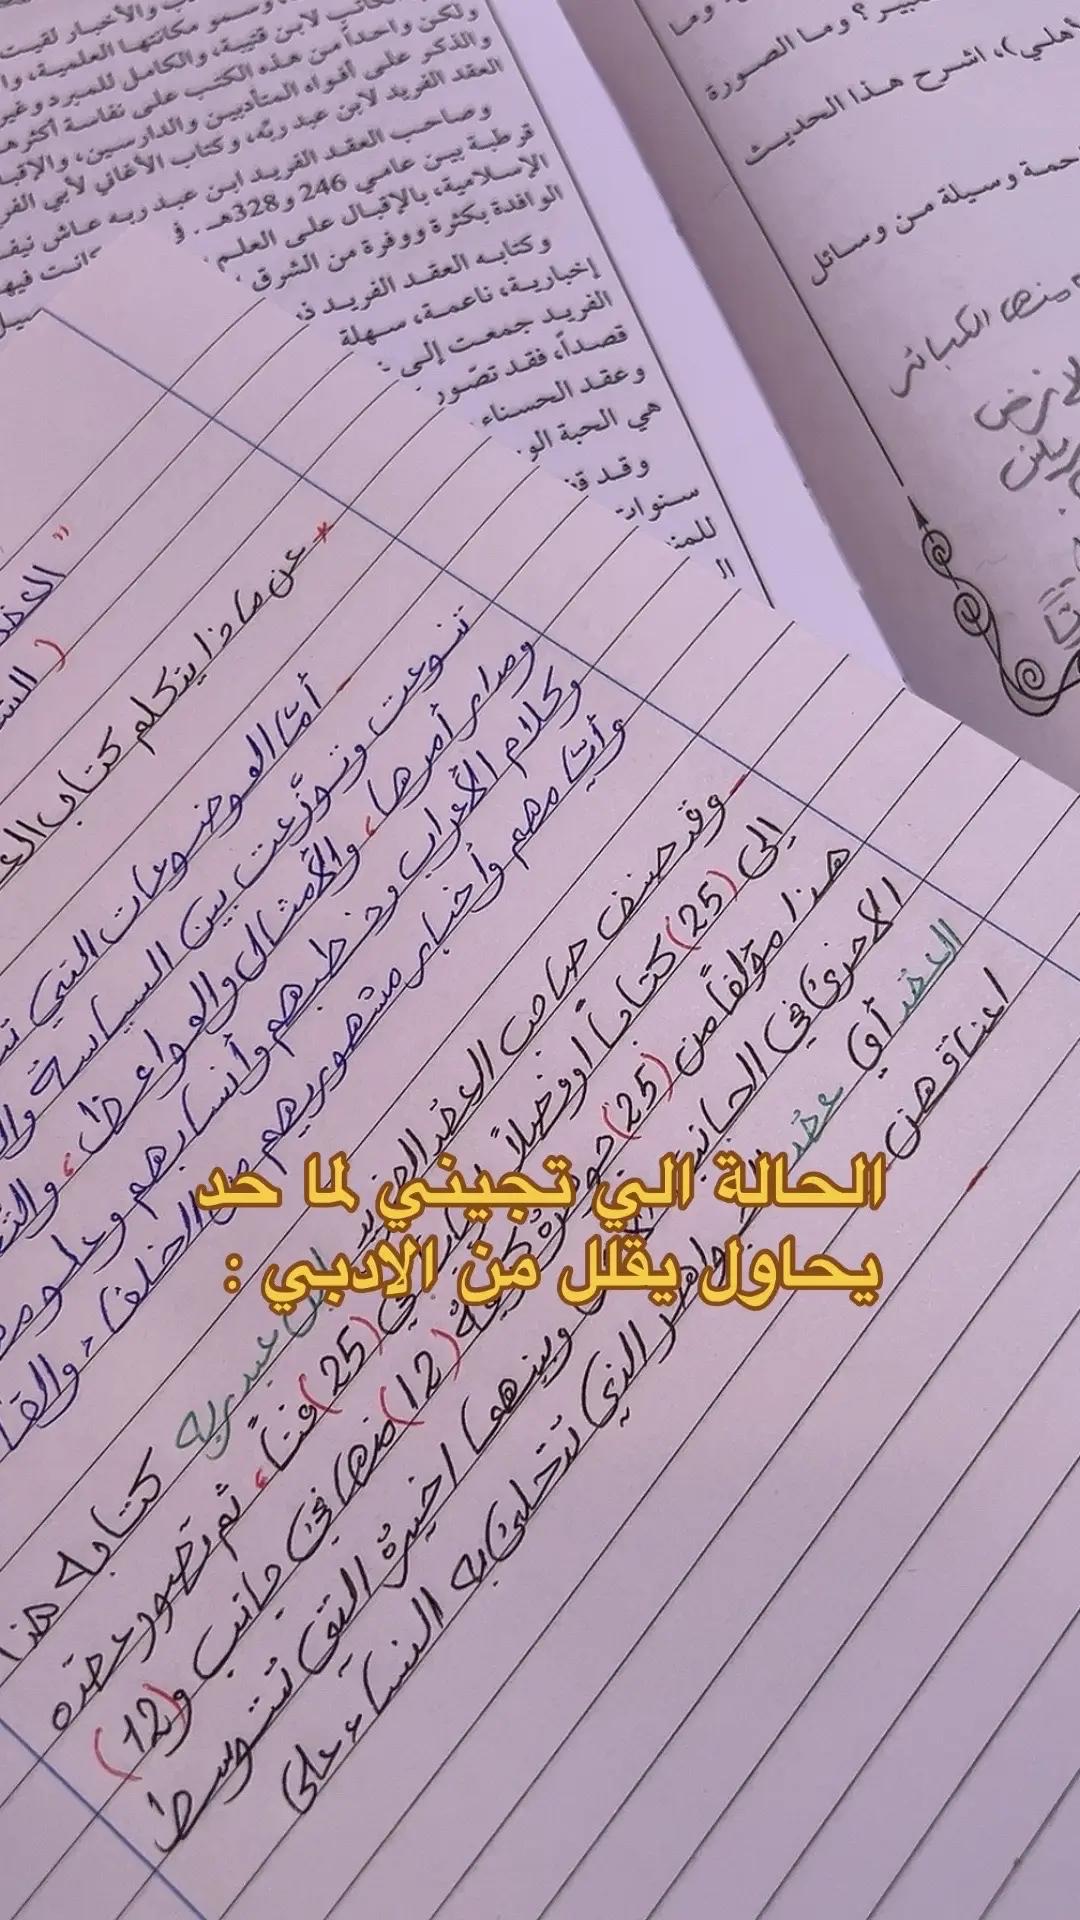 والأخبار لقيت
الكاتب لابن قتيبة، والكامل للمبرد وغير
ولكن واحداً من هذه الكتب على نفاسة أكثرها
والذكر على أفواه المتأدبين والدارسين، والإقبا
العقد الفريد لابن عبد ربّه، وكتاب الأغاني لأبي الفر
وصاحب العقد الفريد ابن عبد ربه عاش نيف
قرطبة بين عامي 246 و328هـ.
الإسلامية، بالإقبال على العلم
الوافدة بكثرة ووفرة من الشرق
وكتابه العقد الفريد
إخبارية، ناعمة، سهلة
الفريد جمعت إلى
قصداً، فقد تصّور
وعقد الحسناء
هي الحبة الو
وقد
سنوات
للمن
؟ وما الصورة
أهلي)، اشرح هذا الحديث
وسيلة من وسائل
منها الكبائر
الارض
* عن ماذا يتكلم كتاب
- أمّا الموضوعات التي
تنوعت وتوزّعت بين السياسة
ومدار أمرها، والأمثال والمواعظ،
وكلام الأعراب وخطبهم وأنسابهم وعلومهم
وأيّامهم وأخبار مشهوريهم من الخلفاء والق
- وقد صنف صاحب العقد الفريد ابن عبد ربه كتابه هذا
إلى (25) كتاباً اوفصلاً في (25) فنّاً، ثم تصور عقده
هذا مؤلفاً من (25) جوهرة كريمة (12) منها في جانب و(12)
الاخرى في الجانب وبينهما اخيرة التي تتوسط
العقد أي عقد الجواهر الذي تتحلى به النساء على
اعناقهن -
الحالة الي تجيني لما حد
يحاول يقلل من الادبي :